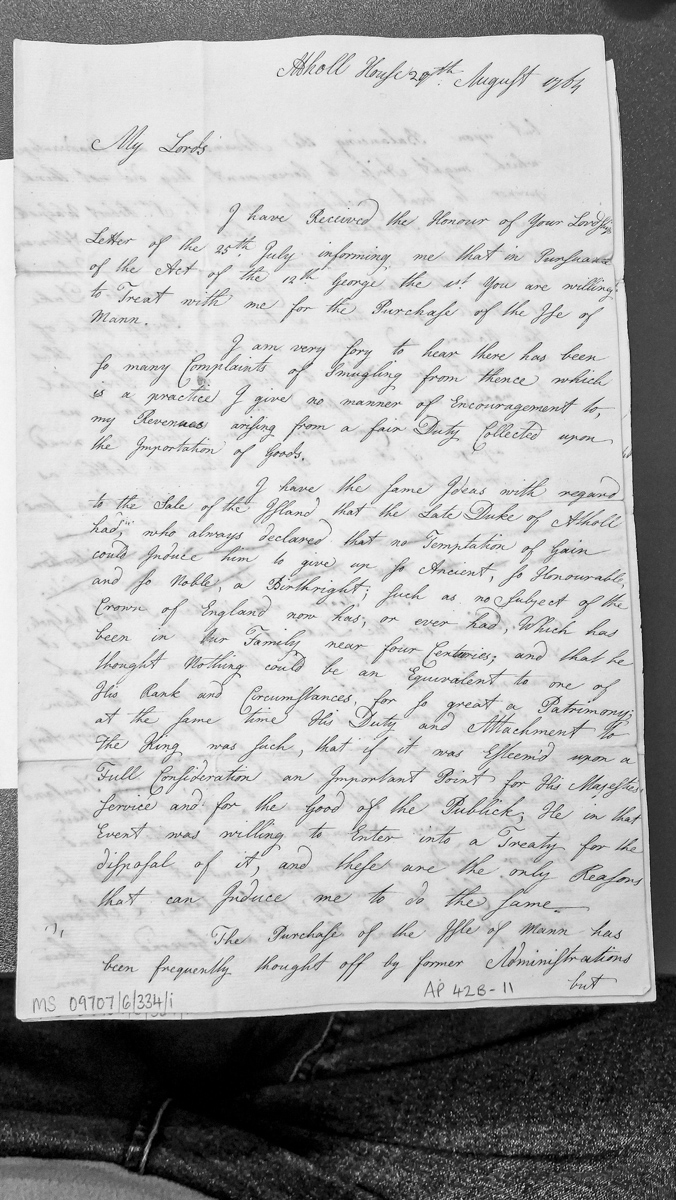 Atholl House 29th. August 1764
My Lords
I have Received the Honour of Your Lordships
Letter of the 25th. July informing me that in Pursuance
of the Act of the 12th. George the 1st You are willing
to Treat with me for the Purchase of the Isle of
Mann.
I am very sory to hear there has been
so many Complaints of Smugling from thence which
is a practice I give no manner of Encouragement to,
my Revenues arising from a fair Duty Collected upon
the Importation of Goods.
I have the same Ideas with regard
to the Sale of the Island that the Late Duke of Atholl
had, who always declared that no Temptation of Gain
could Induce him to give up so Ancient, so Honourable,
and so Noble, a Birthright; such as no Subject of the
Crown of England now has, or ever had, Which has
been in Our Family near four Centuries; and that he
thought Nothing could be an Equivalent to one of
His Rank and Circumstances, for so great a Patrimony;
at the same time His Duty and Attachment to
The King was such, that if it was Esteem'd upon a
Full Consideration an Important Point for His Majesties
Service and for the Good off the Publick, He in that
Event was willing to Enter into a Treaty for the
disposal of it, and these are the only Reasons
that can Induce me to do the same_
The Purchase of the Isle of Mann has
been frequently thought off by former Administrations
but
MS 09707/6/334/i
AP 42B-11